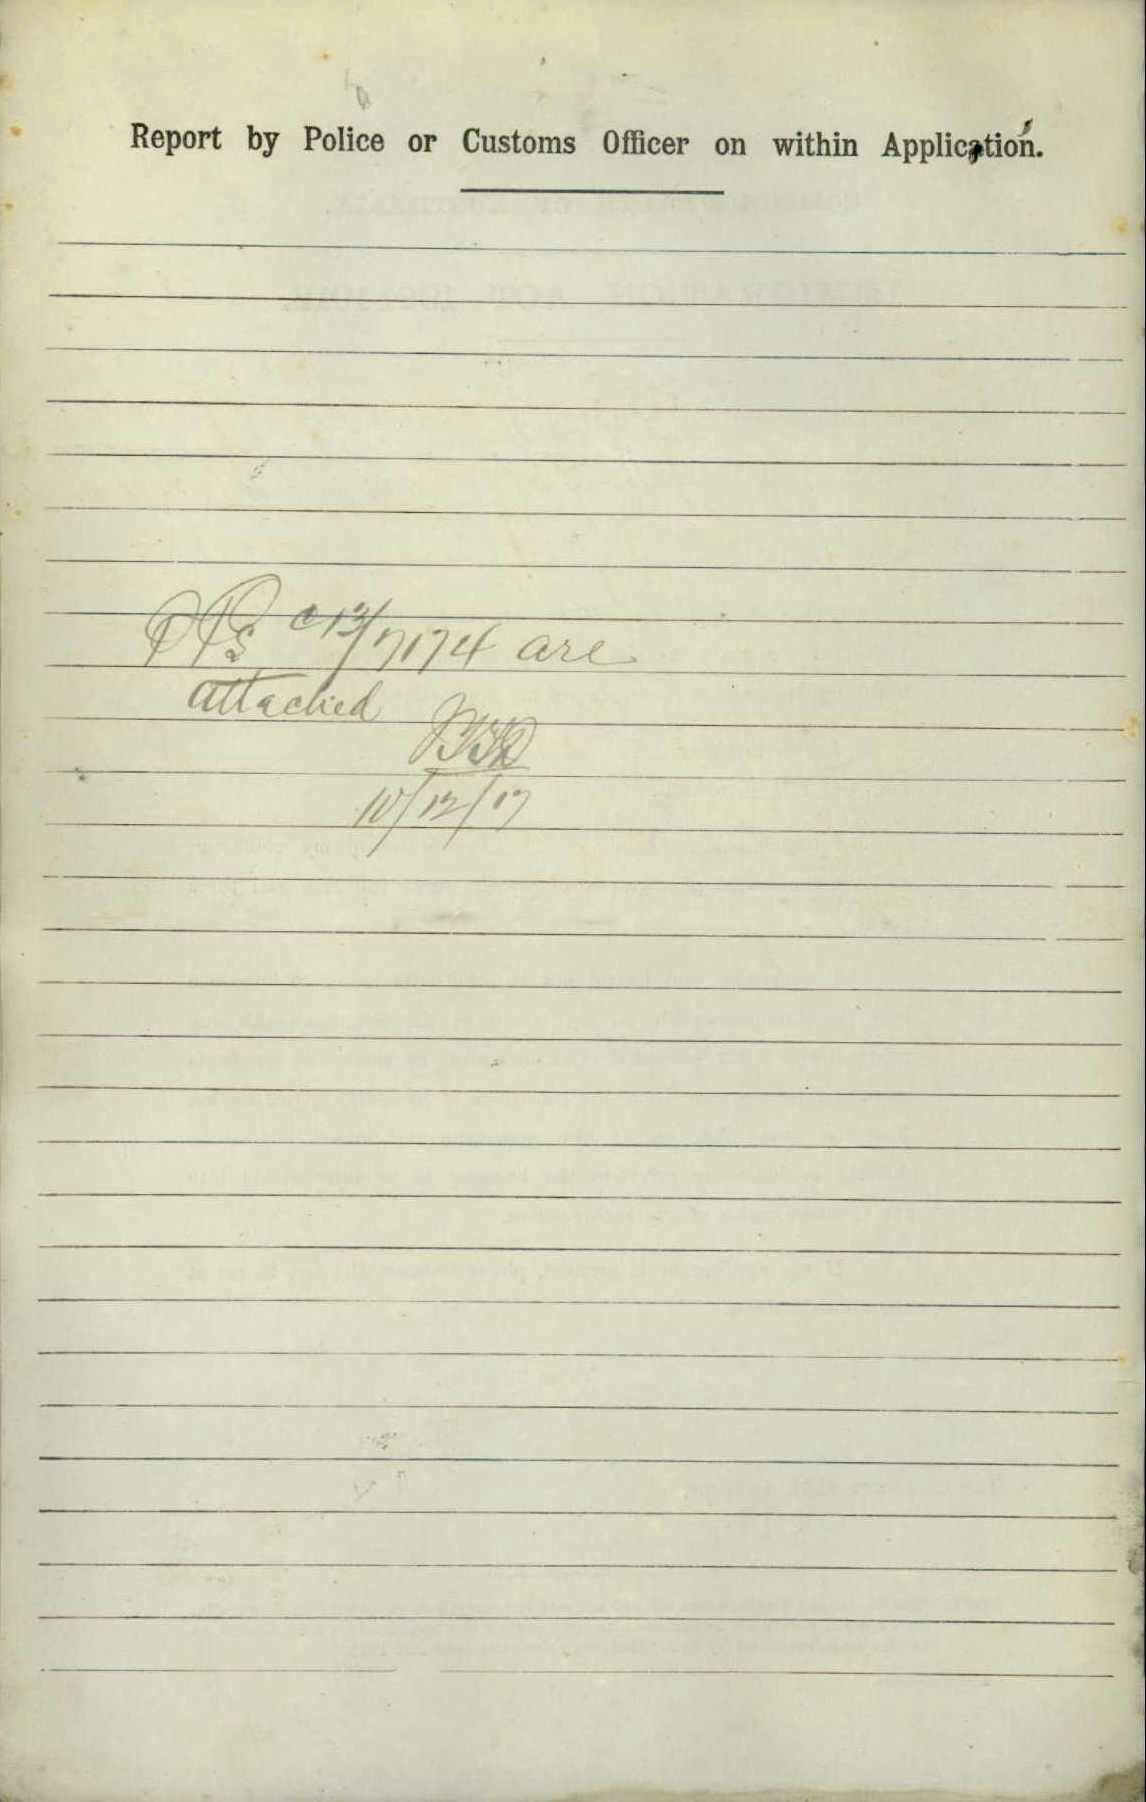 Report by Police or Customs Officer on within Application.
PPs C13/7174 are
attached
10/12/17